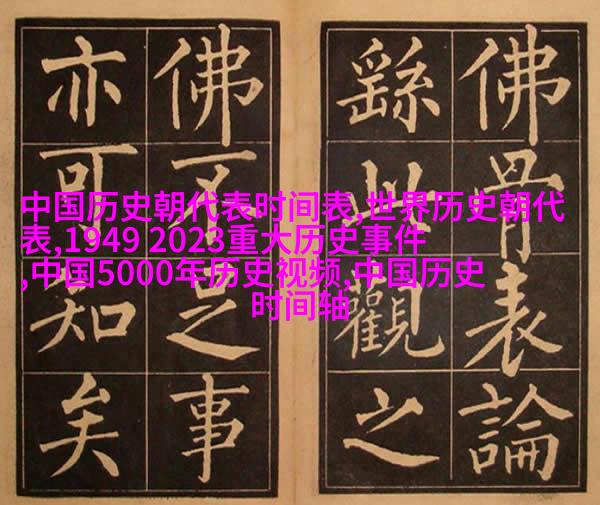 中国历史朝代表时间表,世界历史朝代
表,1949 2023重大历史事件
,中国5000年历史视频,中国历史
时间轴
佛骨表論
繇此觀之
佛不足事
亦可知矣